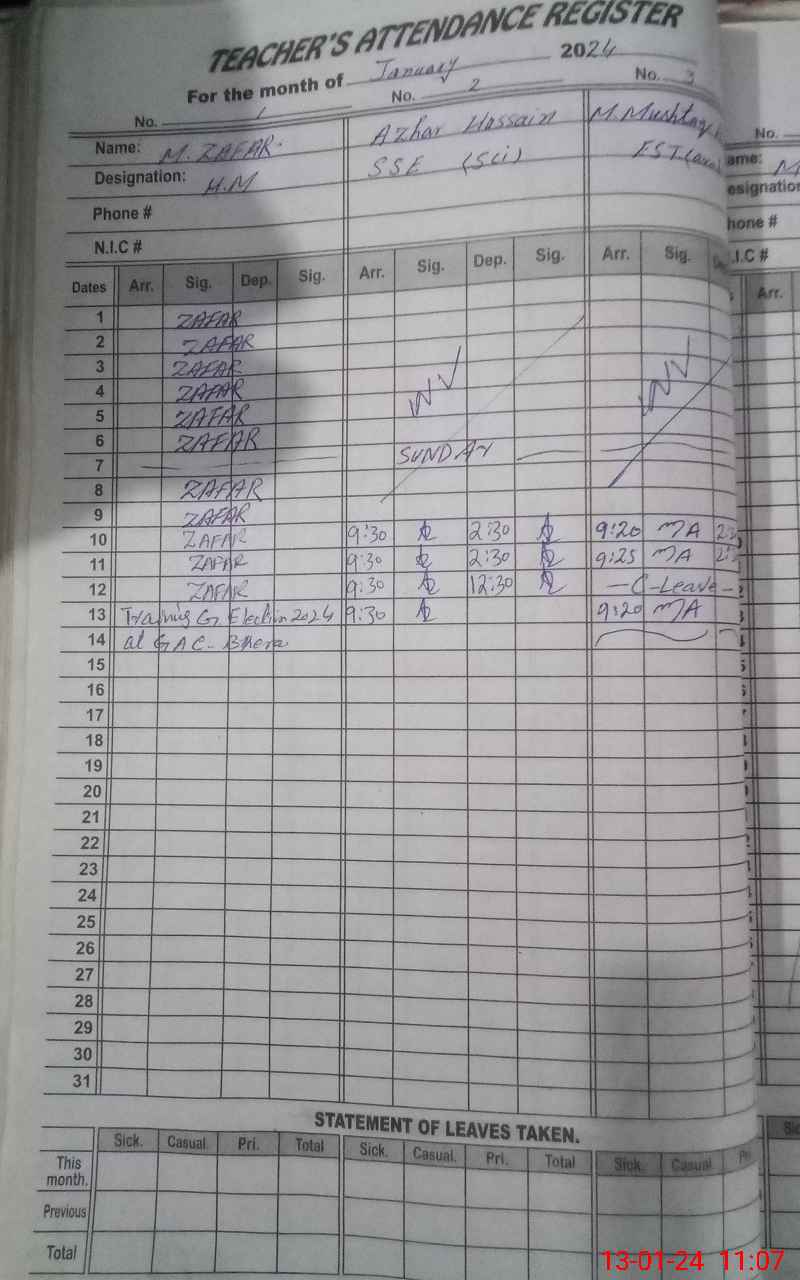 TEACHER'S ATTENDANCE REGISTER
For the month of January 2024
No. 1 No. 2 No. 3
Name: M. ZAFAR. Azhar Hassain M. Mushtaq
Designation: H.M SSE (Sci)
Phone #
N.I.C #
Dates Arr. Sig. Dep. Sig. Arr. Sig. Dep. Sig. Arr. Sig.
1 ZAFAR
2 ZAFAR
3 ZAFAR
4 ZAFAR
5 ZAFAR
6 ZAFAR
7 SUNDAY
8 ZAFAR
9 ZAFAR
10 ZAFAR 9:30 2:30 9:20 MA
11 ZAFAR 9:30 2:30 9:25 MA
12 ZAFAR 9:30 12:30 - C-Leave -
13 Training G. Election 2024 9:30 9:20 MA
14 at GAC- Bhera
15
16
17
18
19
20
21
22
23
24
25
26
27
28
29
30
31
STATEMENT OF LEAVES TAKEN.
Sick. Casual. Pri. Total Sick. Casual. Pri. Total Sick. Casual
This month.
Previous
Total
No.
ame:
esignation
hone #
.I.C #
Arr.
13-01-24 11:07